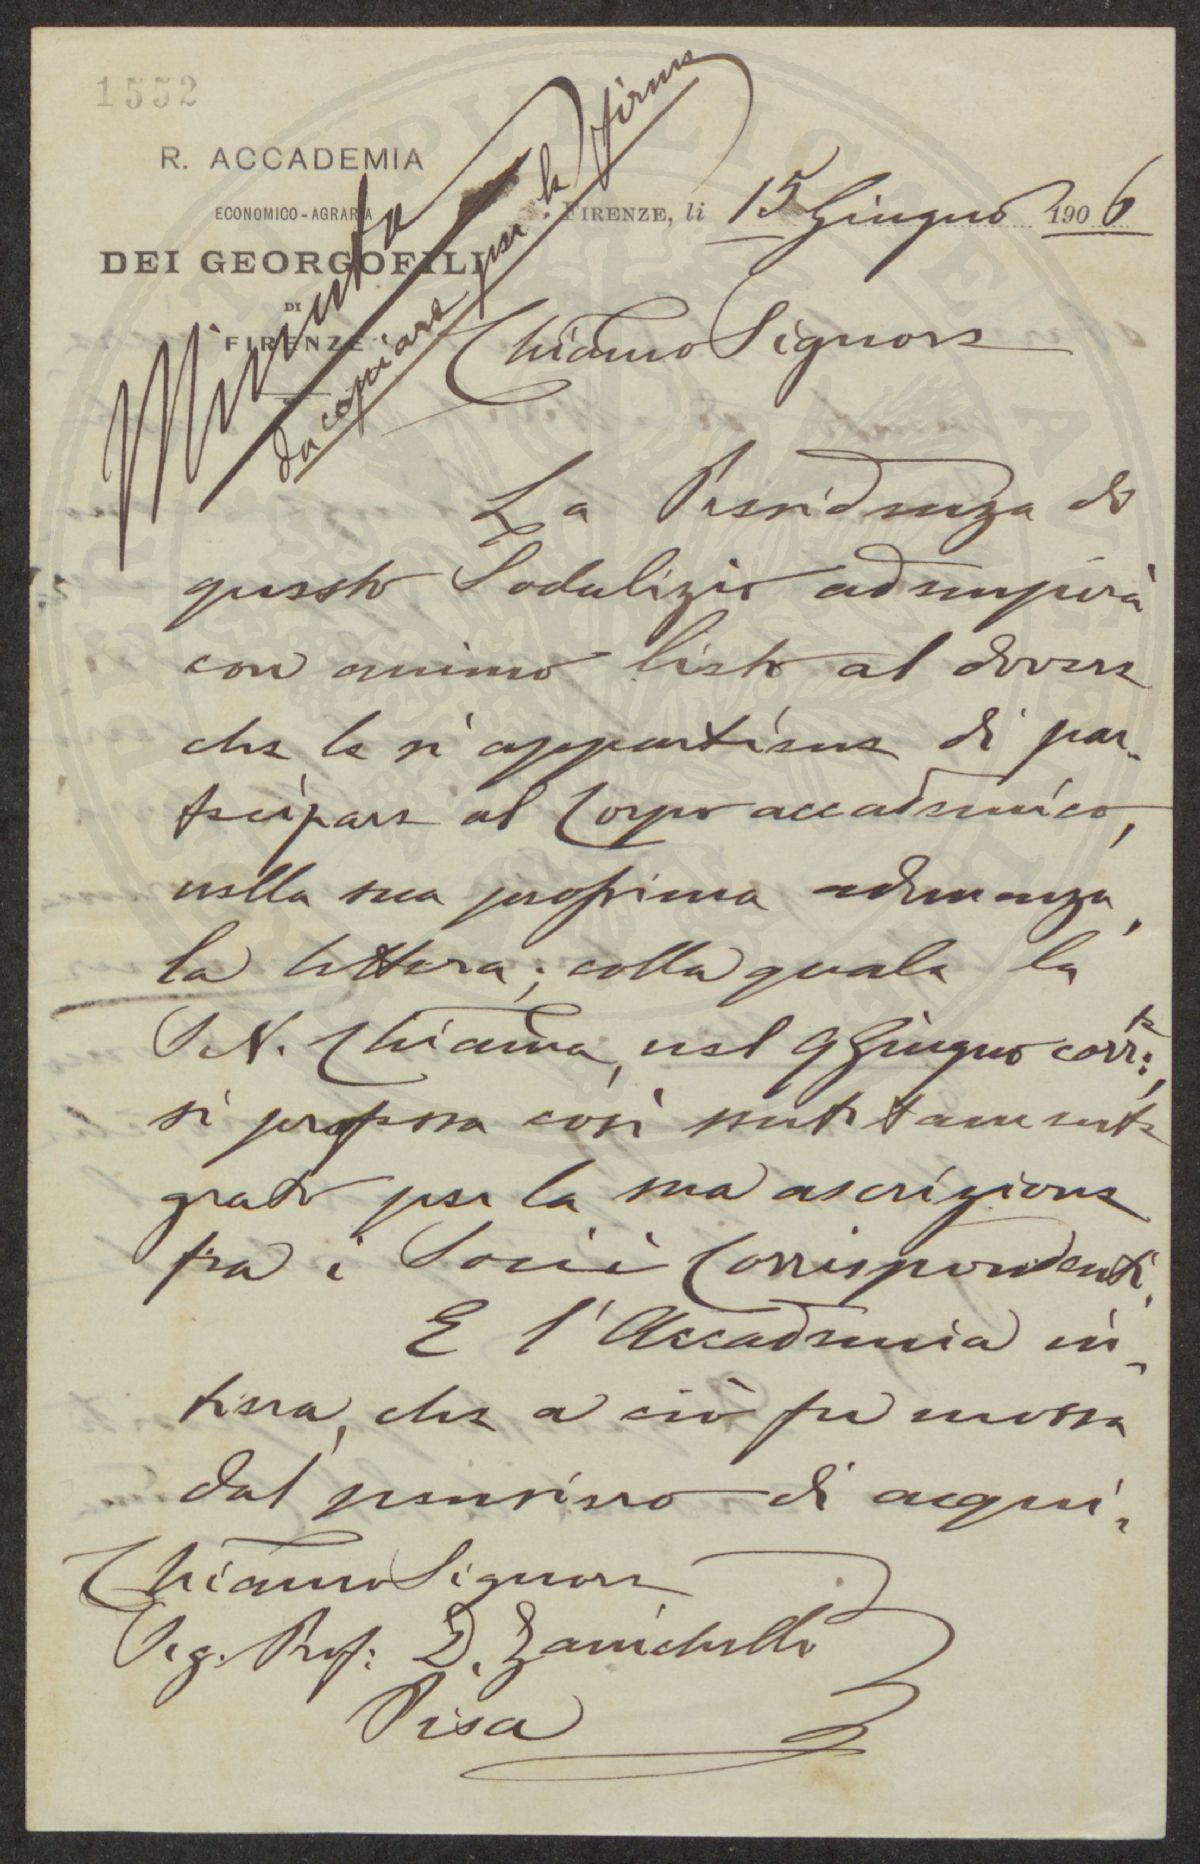 1552
R. ACCADEMIA
ECONOMICO-AGRARIA
DEI GEORGOFILI
DI
FIRENZE
Minuta
da copiare per la firma
FIRENZE, li 15 Giugno 1906
Chiarmo Signore
La Presidenza di
questo Sodalizio adempirà
con animo lieto al dovere
che le si appartiene di par-
tecipare al Corpo accademico,
nella sua prossima adunanza,
la lettera, colla quale la
S. V. Chiarma, nel 9 Giugno corr:te,
si professa così
grato per la sua ascrizione
fra i Socii Corrispondenti.
E l'Accademia in-
tiera, che a ciò fu mossa
dal pensiero di acqui-
Chiarmo Signore
Sig. Prof: D. Zanichelli
Pisa